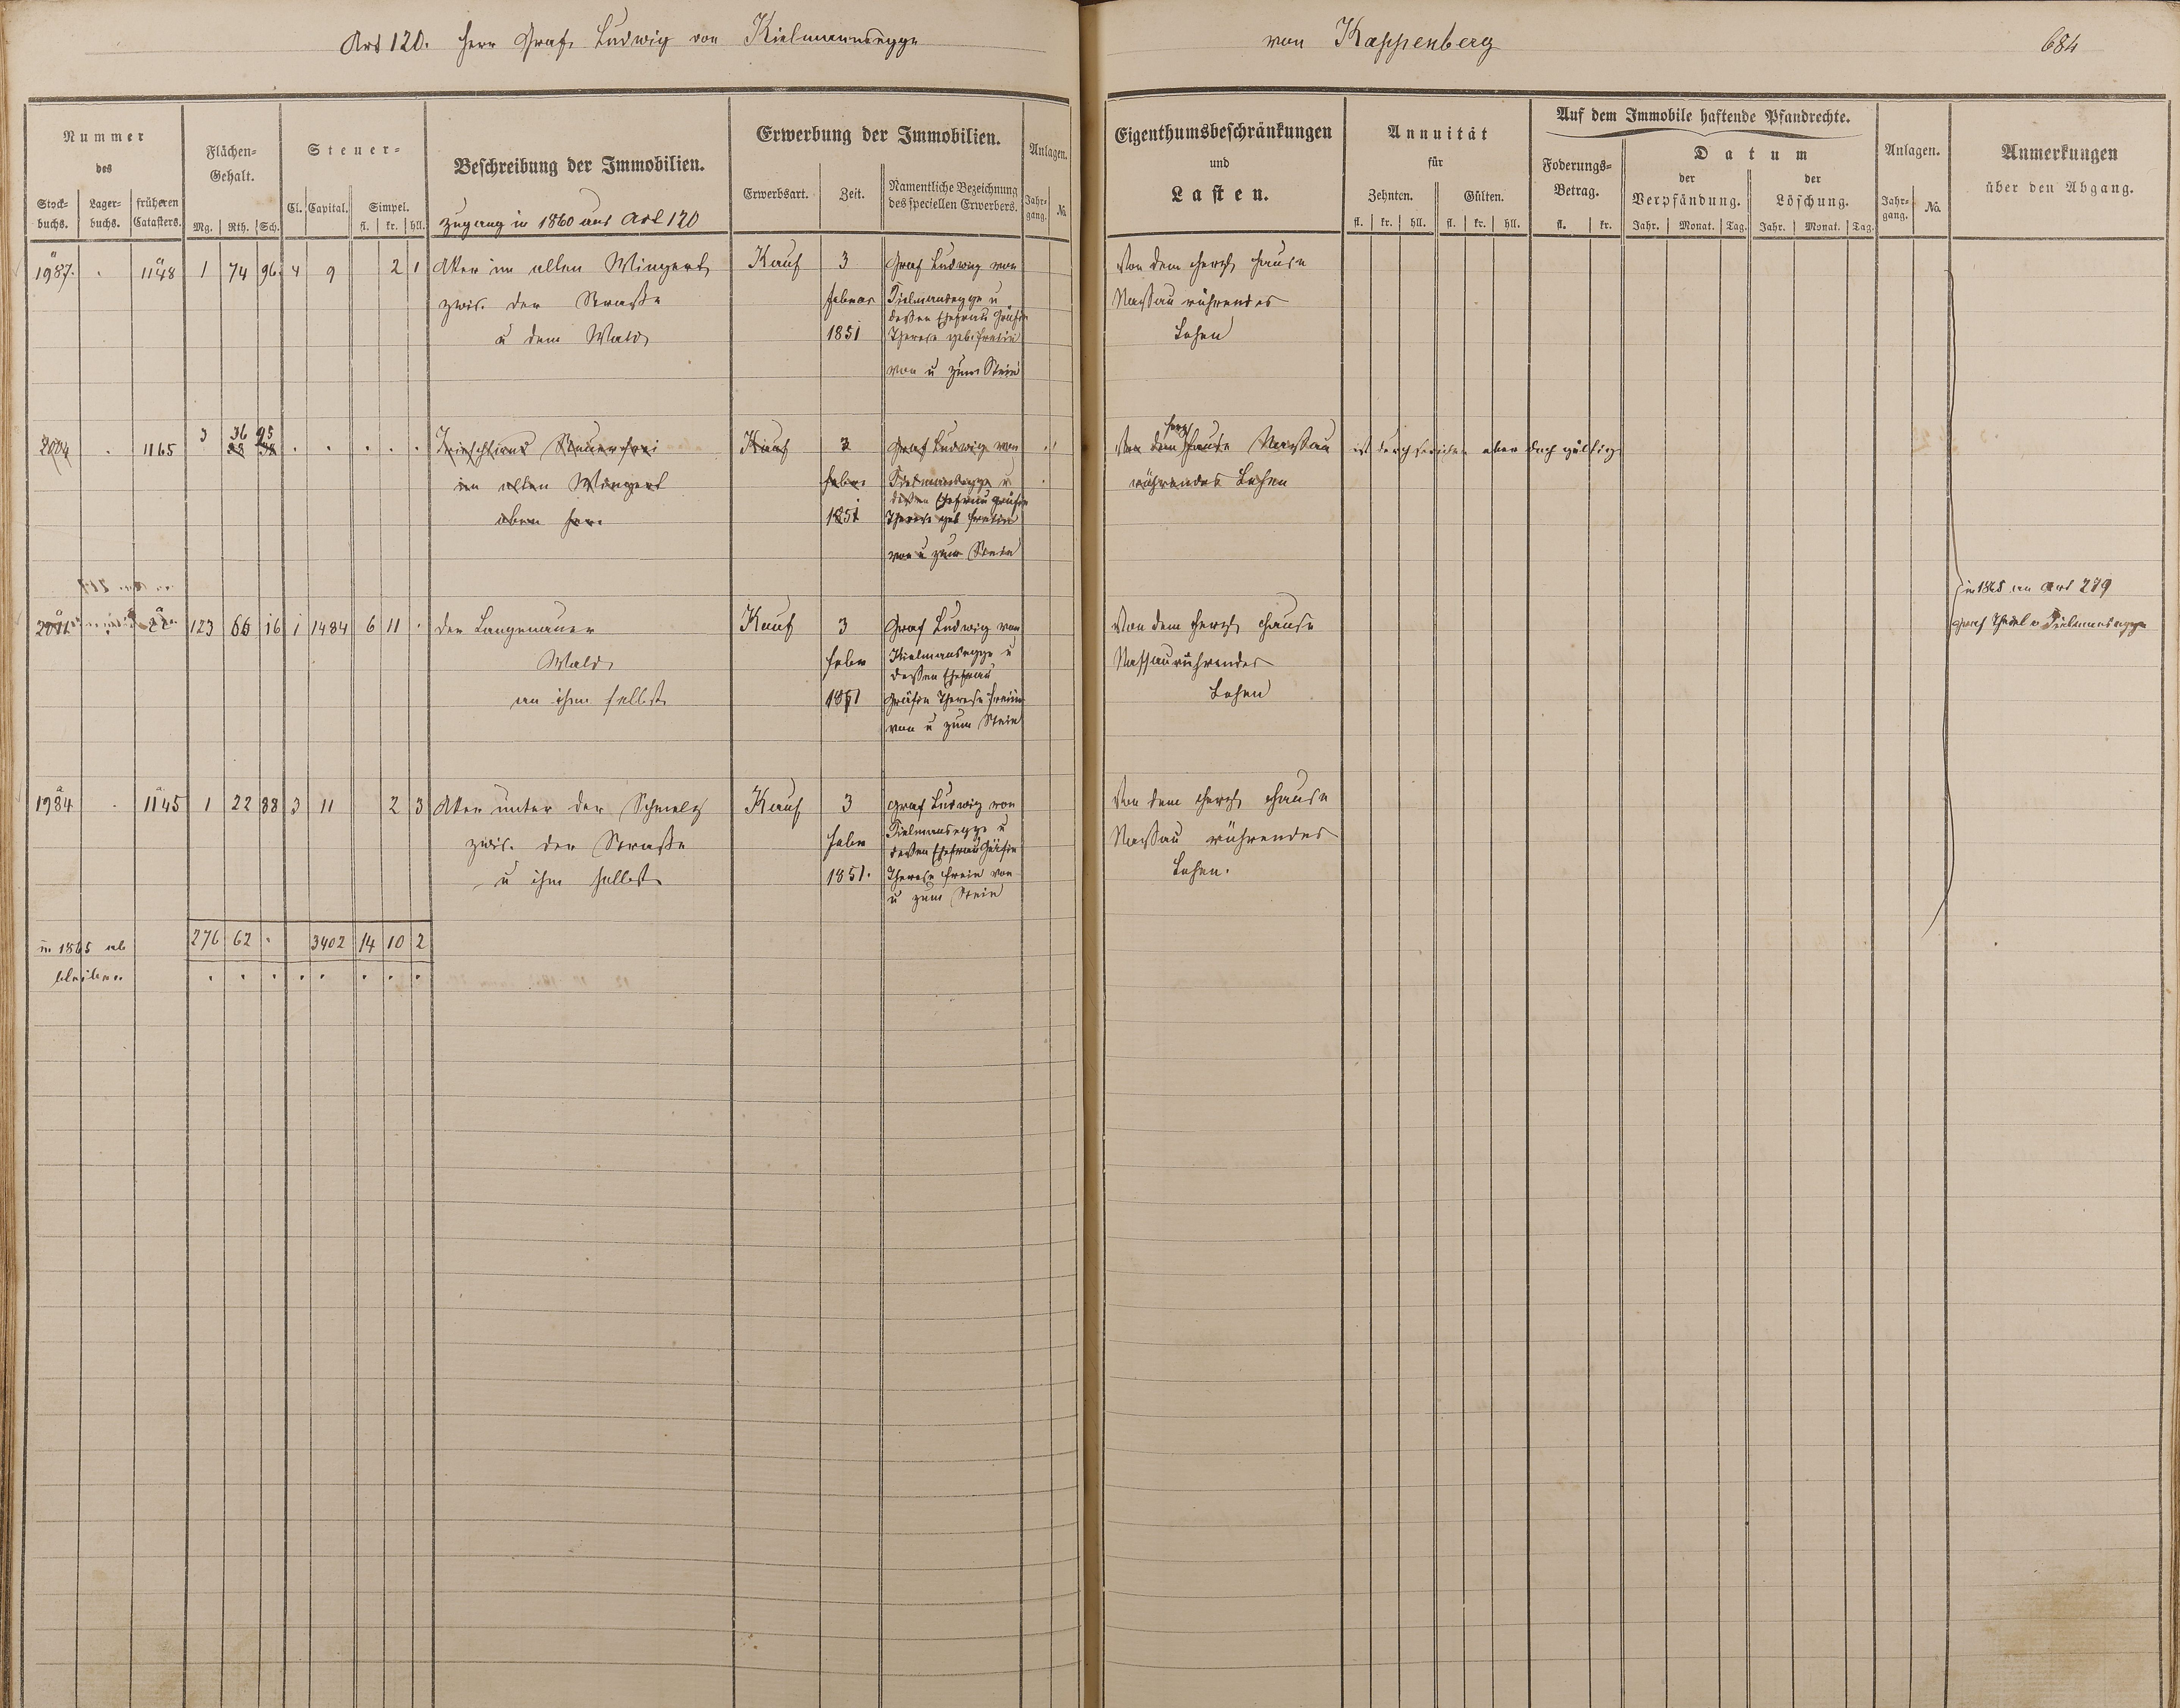 Art 120. Herr Graf Ludwig von Kielmannsegge
von Kappenberg
684
Nummer
des
Stock-
buchs.
Lager-
buchs.
früheren
Catasters.
Flächen-
Gehalt.
Mg. Rth. Sch.
Steuer-
Cl. Capital. Simpel.
fl. kr. hll.
Beschreibung der Immobilien.
Zugang in 1860 aus Art 120
Erwerbung der Immobilien.
Erwerbsart. Zeit. Namentliche Bezeichnung
des speciellen Erwerbers.
Anlagen.
Jahr-
gang. No.
Eigenthumsbeschränkungen
und
Lasten.
Annuität
für
Zehnten. Gülten.
fl. kr. hll. fl. kr. hll.
Auf dem Immobile haftende Pfandrechte.
Foderungs-
Betrag.
fl. kr.
Datum
der
Verpfändung.
der
Löschung.
Jahr. Monat. Tag. Jahr. Monat. Tag.
Anlagen.
Jahr-
gang. No.
Anmerkungen
über den Abgang.
1987. 1148 1 74 96 4 9 2 1 Aker im alten Wingert Kauf 3 Graf Ludwig von Von dem Herzl Hause
zwis. der Straße Februar Kielmansegge u Nassau rührendes
deßen Ehefrau Gräfin
u dem Wald 1851 Therese geb. Freiin Lehen
von u zum Stein
2004 1165 3 36 95 Steuerfrei Kauf 3 Graf Ludwig von Von dem Herzl Hause Nassau ist durchstrichen aber doch gültig
im alten Wingert Febr. Kielmansegge u rührendes Lehen
deßen Ehefrau Gräfin
oben her. 1851 Therese geb Freiin
von u zum Stein
in 1865 an Art 279
2011 123 66 16 1 1484 6 11 Der Langenauer Kauf 3 Graf Ludwig von Von dem Herzl Hause Graf Thedel v Kielmansegge
Wald Febr Kielmansegge u Nassau rührendes
deßen Ehefrau
an ihm selbst 1851 Gräfin Therese Freiin Lehen
von u zum Stein
1984 1145 1 22 88 3 11 2 3 Aker unter der Schmelz Kauf 3 Graf Ludwig von Von dem Herzl Hause
zwis. der Straße Febr Kielmansegge u Nassau rührendes
deßen Ehefrau Gräfin
u ihm selbst 1851. Therese Freiin von Lehen.
u zum Stein
in 1865 ab 276 62 . 3402 14 10 2
bleiben . . . . . . . .